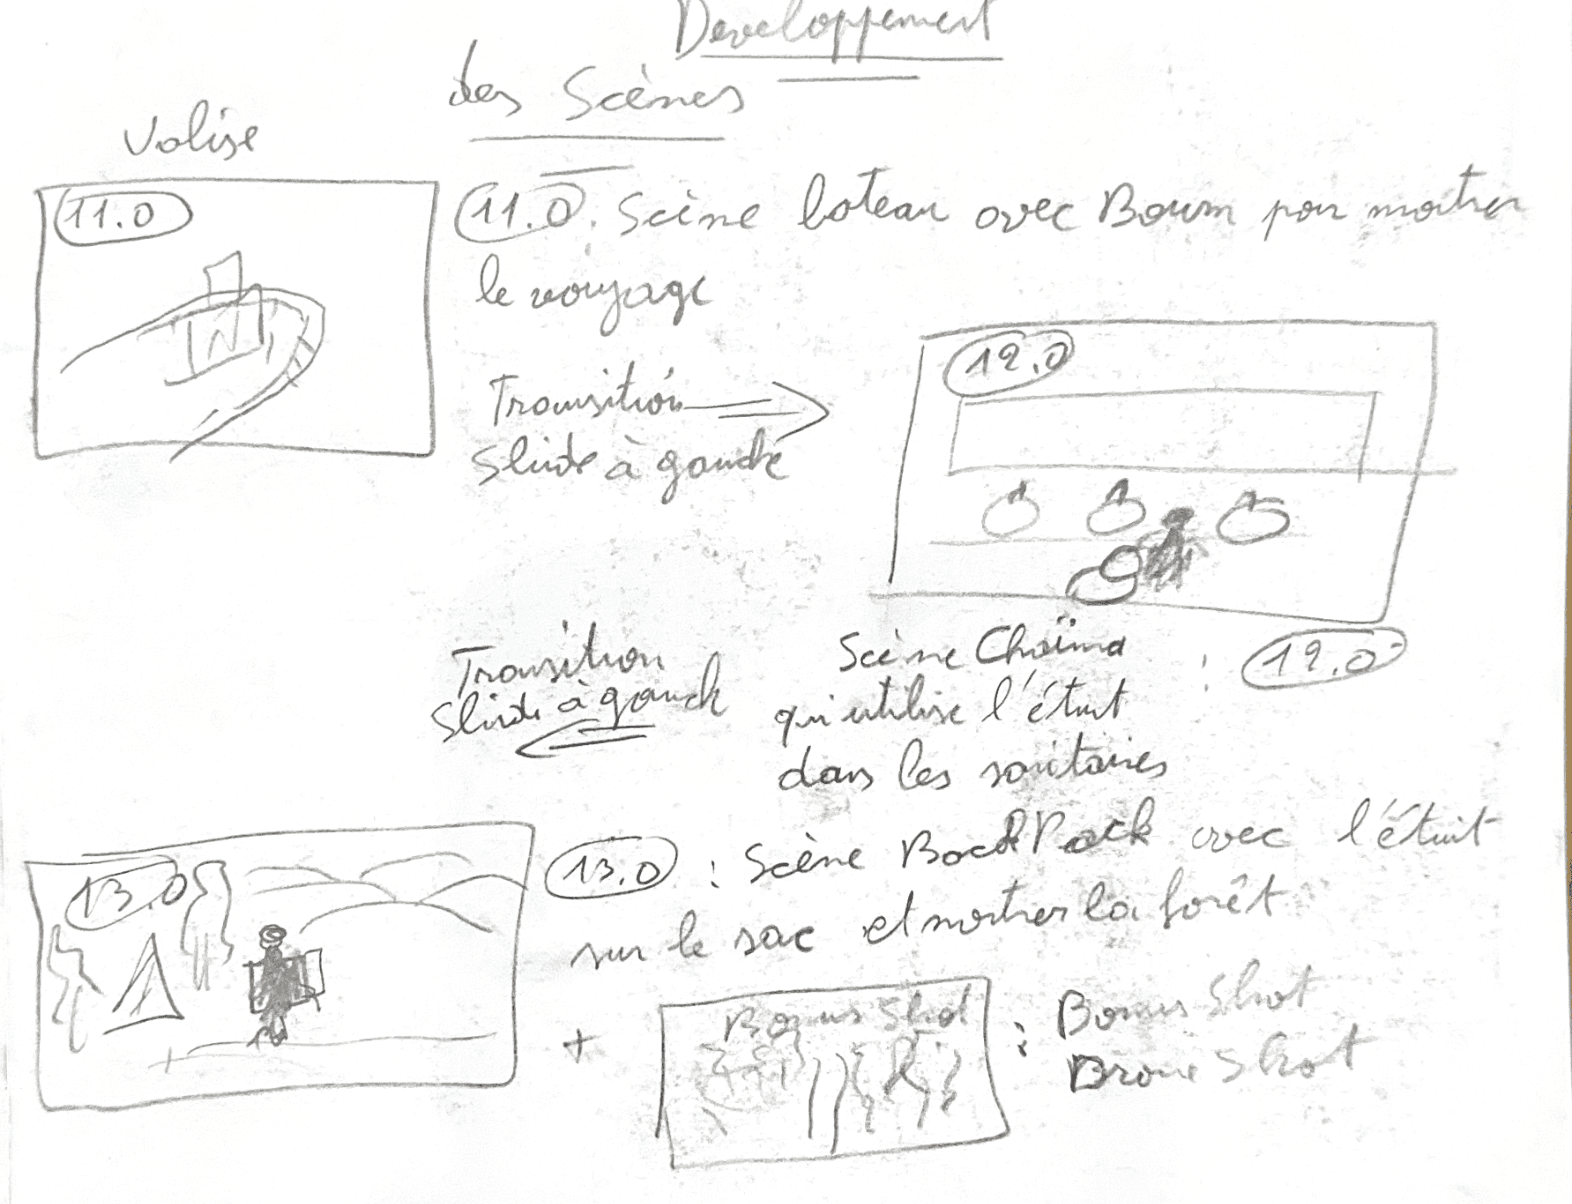 Developpement
des Scènes
Valise
11.0
11.0. Scène bateau avec Boum pour montrer
le voyage
Transition
Slide à gauche
12.0
Transition
Slide à gauch
Scène Chaïma : 12.0
qui utilise l'étuit
dans les sanitaires
13.0
13.0 : Scène BackPack avec l'étuit
sur le sac et montrer la forêt
+ Bonus Shot : Bonus Shot
Drone Shot